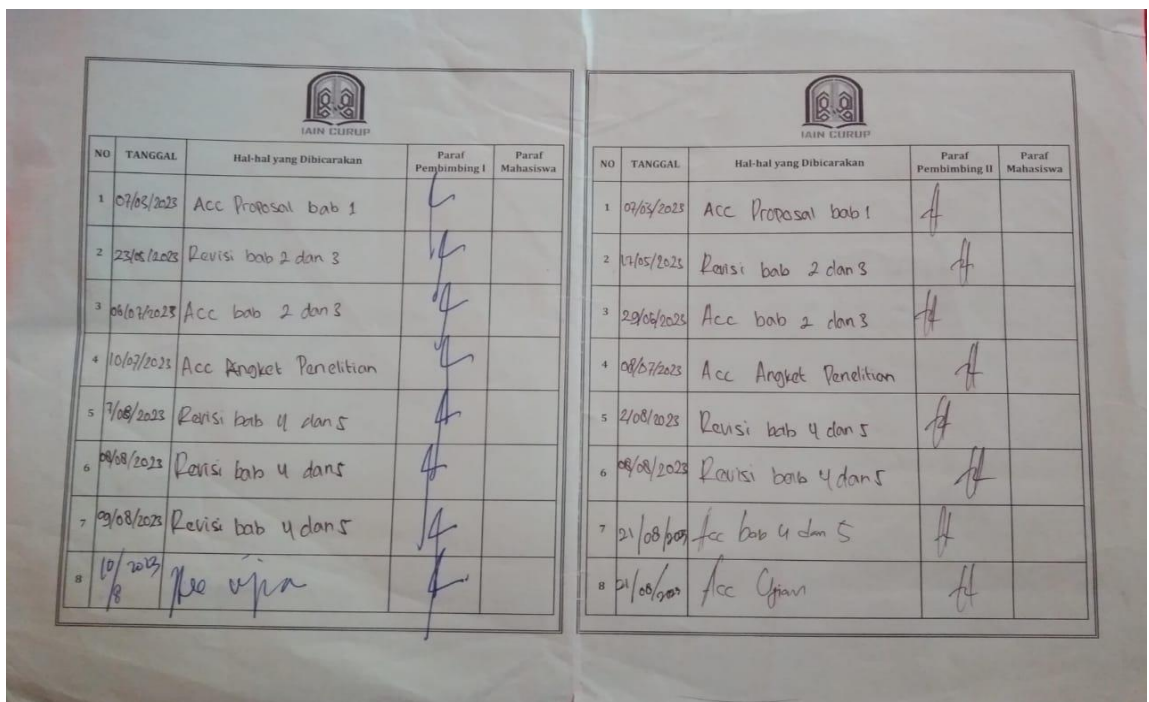 IAIN CURUP
NO TANGGAL Hal-hal yang Dibicarakan Paraf Pembimbing I Paraf Mahasiswa
1 07/03/2023 Acc Proposal bab 1
2 23/05/2023 Revisi bab 2 dan 3
3 06/07/2023 Acc bab 2 dan 3
4 10/07/2023 Acc Angket Penelitian
5 7/08/2023 Revisi bab 4 dan 5
6 08/08/2023 Revisi bab 4 dan 5
7 09/08/2023 Revisi bab 4 dan 5
8 10/8 2023 Acc ujian
IAIN CURUP
NO TANGGAL Hal-hal yang Dibicarakan Paraf Pembimbing II Paraf Mahasiswa
1 07/03/2023 Acc Proposal bab 1
2 17/05/2023 Revisi bab 2 dan 3
3 29/05/2023 Acc bab 2 dan 3
4 08/07/2023 Acc Angket Penelitian
5 2/08/2023 Revisi bab 4 dan 5
6 08/08/2023 Revisi bab 4 dan 5
7 21/08/2023 Acc bab 4 dan 5
8 21/08/2023 Acc Ujian